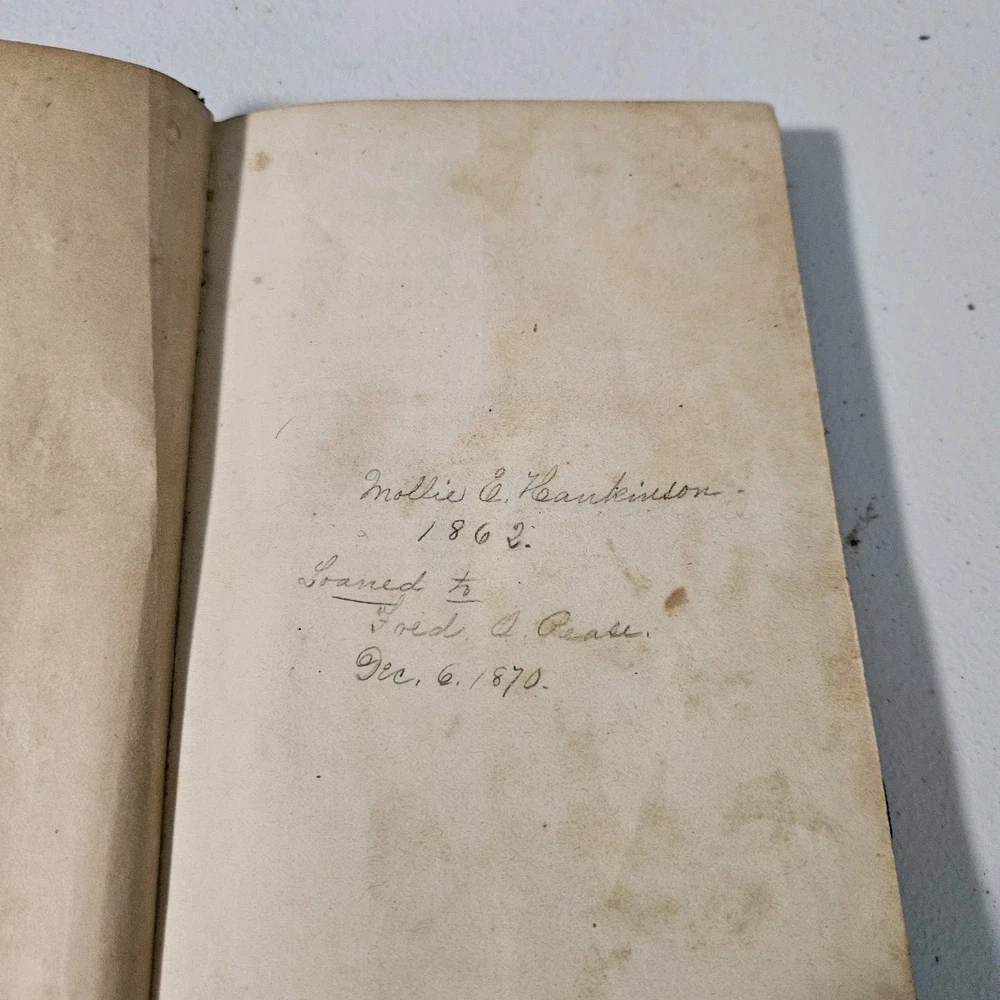 Mollie E. Hankinson.
1862.
Loaned to
Fred. A. Pease.
Dec. 6. 1870.